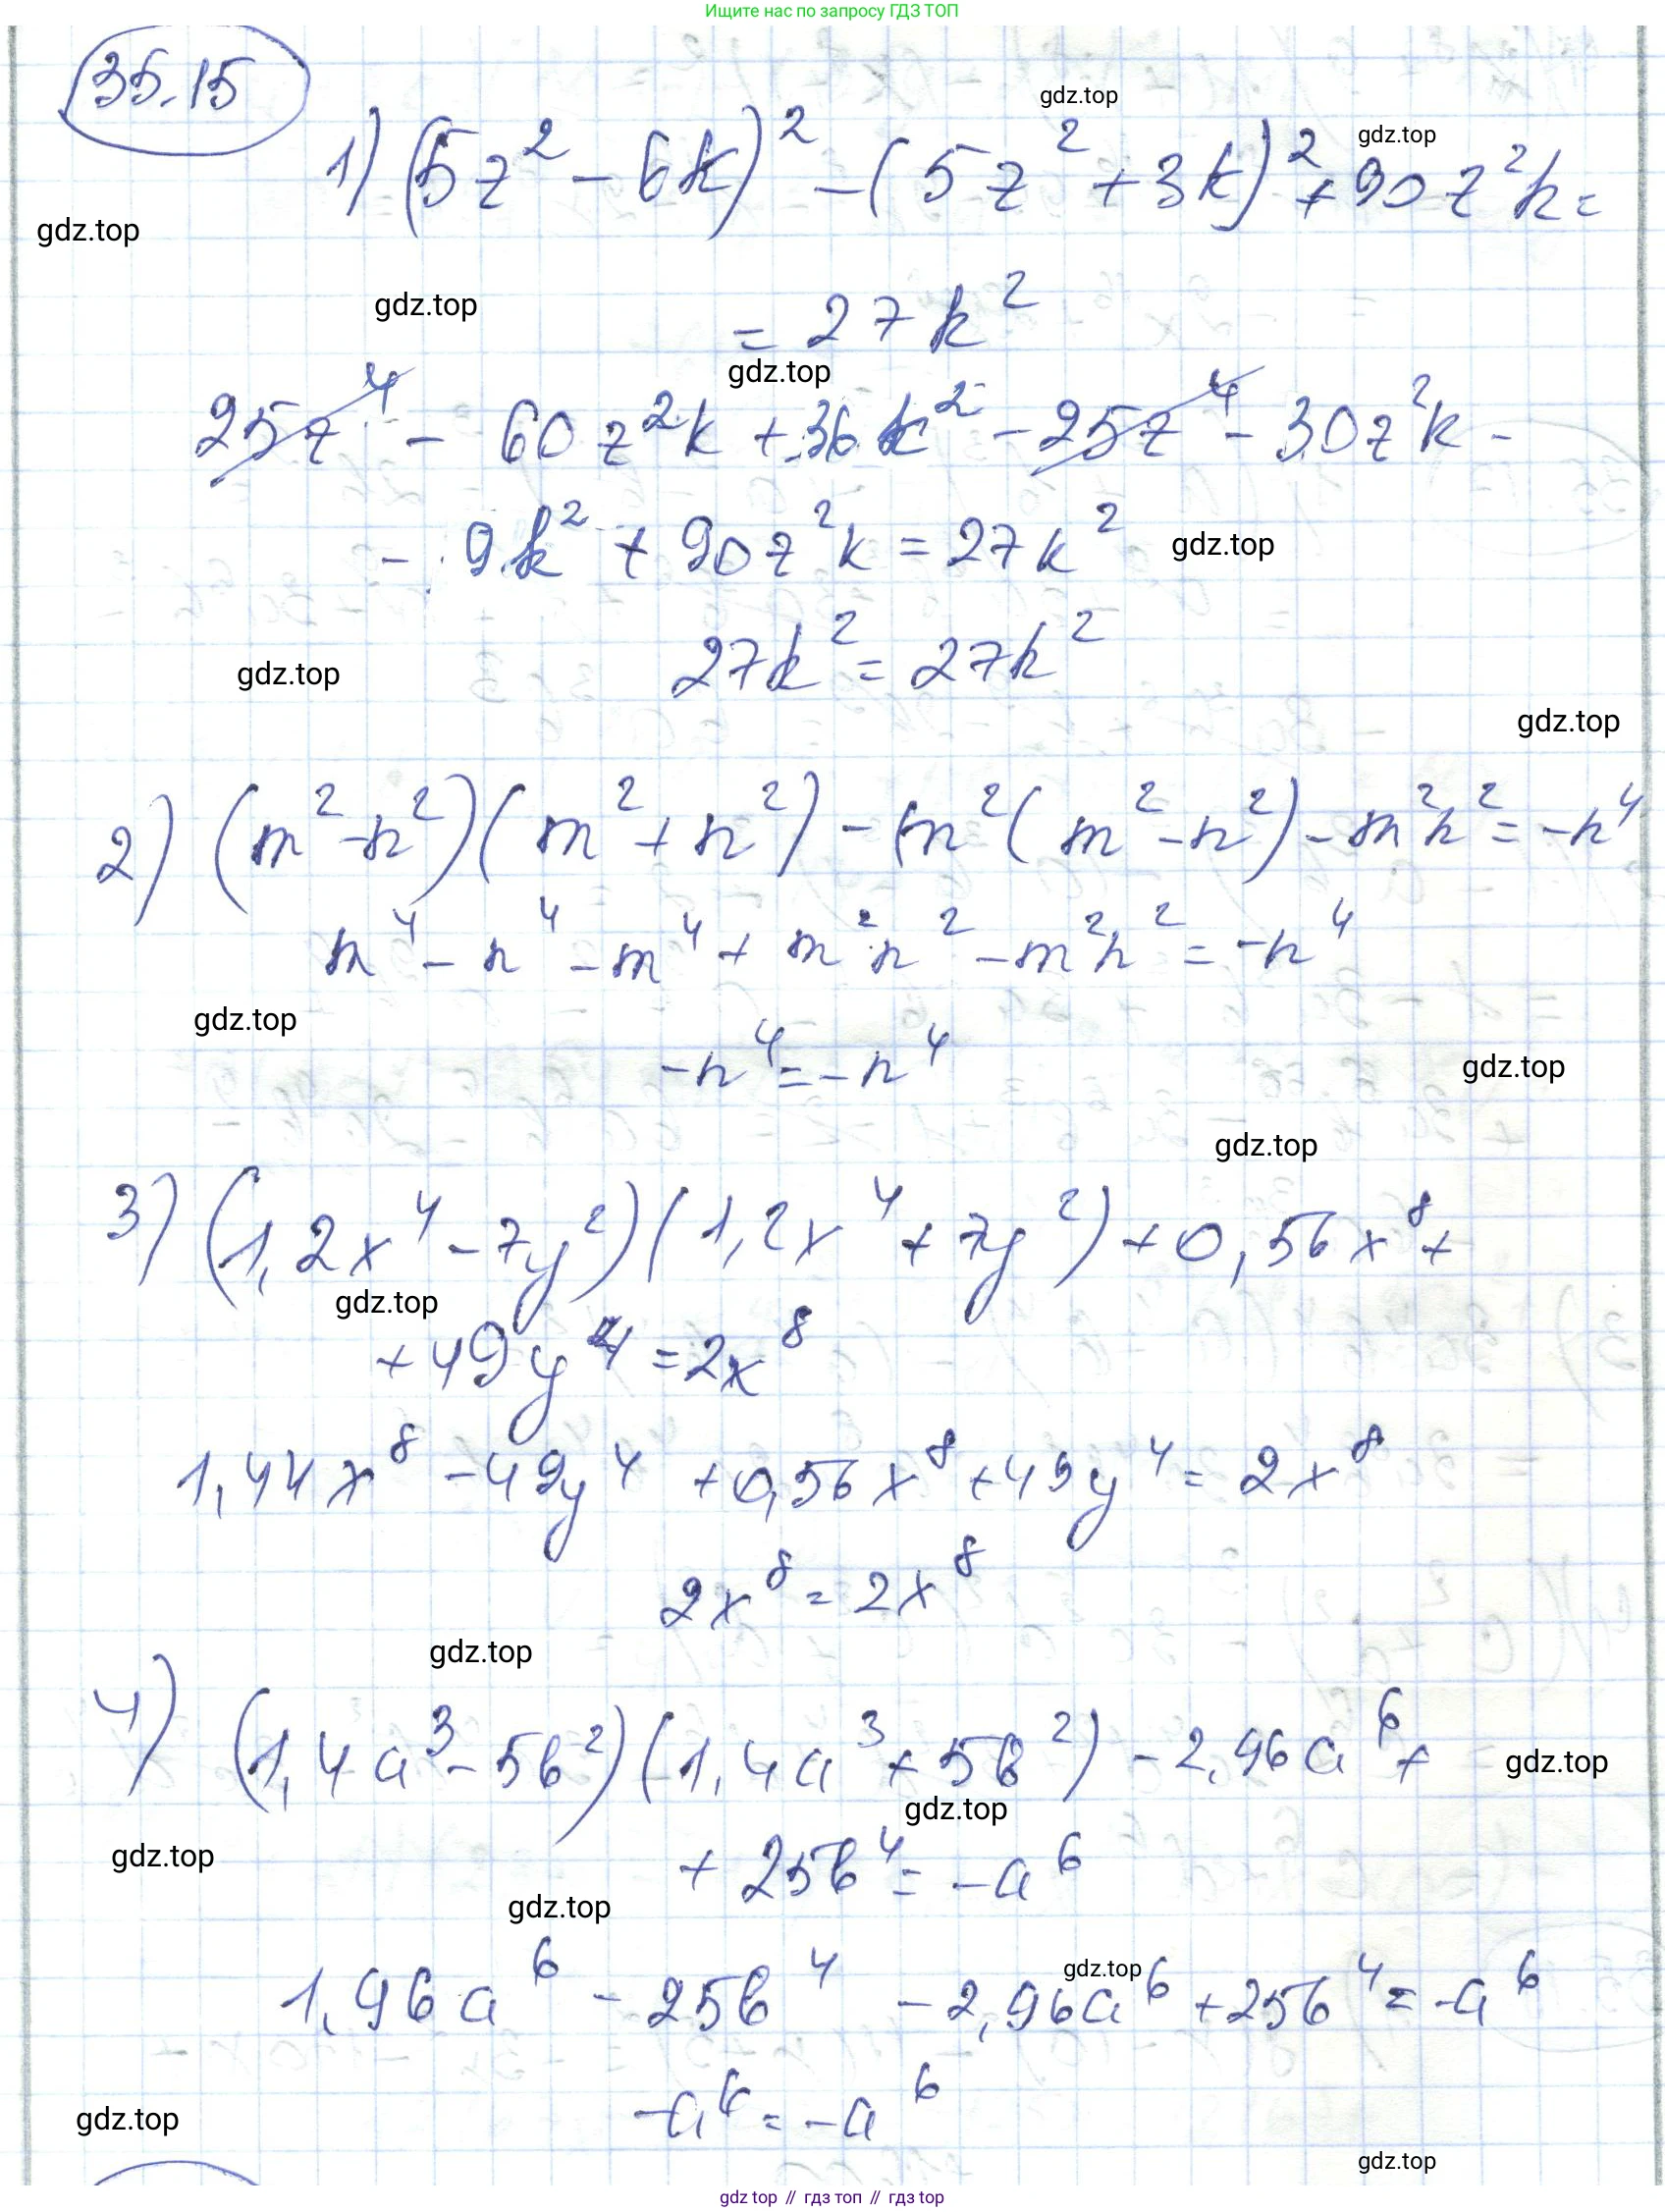 Ищите нас по запросу ГДЗ ТОП
35.15
gdz.top
1) (5z² - 6k)² - (5z² + 3k)² + 90z²k =
gdz.top
gdz.top
gdz.top
= 27k²
gdz.top
25z⁴ - 60z²k + 36k² - 25z⁴ - 30z²k -
- 9k² + 90z²k = 27k²
gdz.top
27k² = 27k²
gdz.top
gdz.top
2) (m² - n²)(m² + n²) - (m²(m² - n²) - m²n² = -n⁴
m⁴ - n⁴ - m⁴ + m²n² - m²n² = -n⁴
gdz.top
-n⁴ = -n⁴
gdz.top
gdz.top
3) (1,2x⁴ - 7y²)(1,2x⁴ + 7y²) + 0,56x⁸ +
gdz.top
+ 49y⁴ = 2x⁸
1,44x⁸ - 49y⁴ + 0,56x⁸ + 49y⁴ = 2x⁸
2x⁸ = 2x⁸
gdz.top
4) (1,4a³ - 5b²)(1,4a³ + 5b²) - 2,96a⁶ +
gdz.top
gdz.top
gdz.top
+ 25b⁴ = -a⁶
gdz.top
gdz.top
1,96a⁶ - 25b⁴ - 2,96a⁶ + 25b⁴ = -a⁶
-a⁶ = -a⁶
gdz.top
gdz.top
gdz top // гдз топ // gdz.top